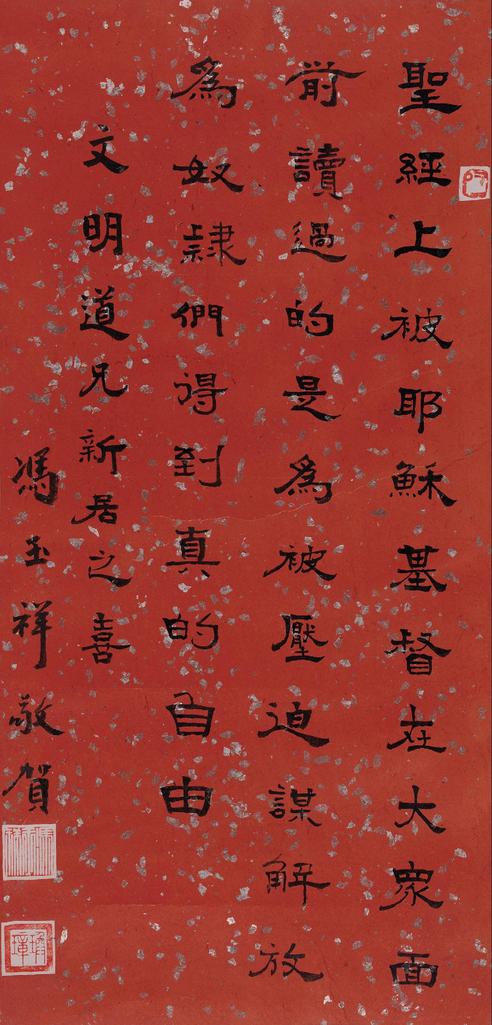 聖經上被耶穌基督在大眾面
前讀過的是為被壓迫謀解放
為奴隸們得到真的自由
文明道兄新居之喜
馮玉祥敬賀